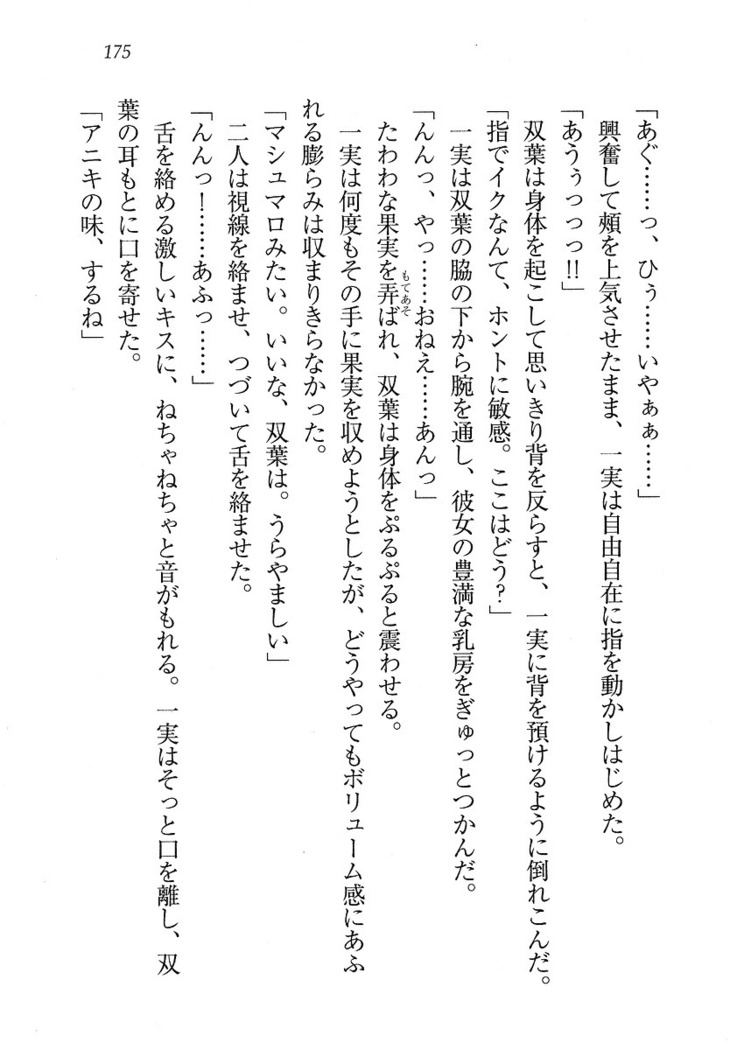 175
「あぐ……っ、ひぅ……いやぁぁ……」
興奮して頬を上気させたまま、一実は自由自在に指を動かしはじめた。
「あうぅっっっ!!」
双葉は身体を起こして思いきり背を反らすと、一実に背を預けるように倒れこんだ。
「指でイクなんて、ホントに敏感。ここはどう?」
一実は双葉の脇の下から腕を通し、彼女の豊満な乳房をぎゅっとつかんだ。
「んんっ、やっ……おねえ……あんっ」
たわわな果実を弄ばれ、双葉は身体をぷるぷると震わせる。
もてあそ
一実は何度もその手に果実を収めようとしたが、どうやってもボリューム感にあふ
れる膨らみは収まりきらなかった。
「マシュマロみたい。いいな、双葉は。うらやましい」
二人は視線を絡ませ、つづいて舌を絡ませた。
「んんっ！……あふっ……」
舌を絡める激しいキスに、ねちゃねちゃと音がもれる。一実はそっと口を離し、双
葉の耳もとに口を寄せた。
「アニキの味、するね」